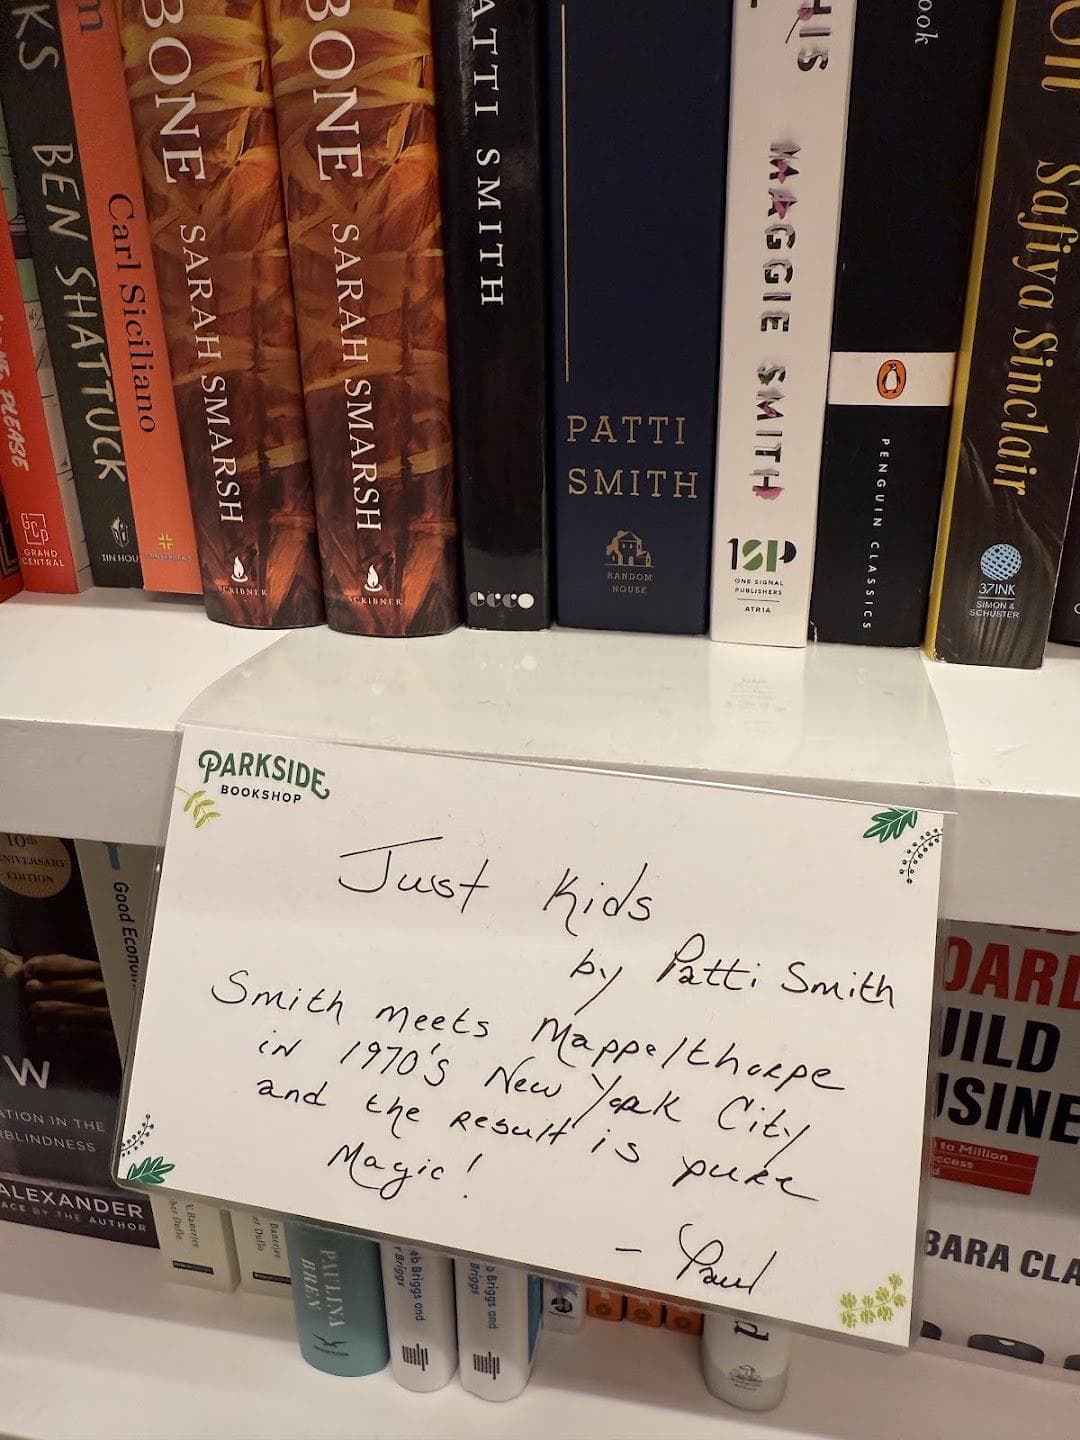 BEN SHATTUCK
TIN HOU
GRAND
CENTRAL
PLEASE
Carl Siciliano
BONE
SARAH SMARSH
SCRIBNER
BONE
SARAH SMARSH
SCRIBNER
ATTI SMITH
ecco
PATTI
SMITH
RANDOM
HOUSE
MAGGIE SMITH
1SP
ONE SIGNAL
PUBLISHERS
ATRIA
PENGUIN CLASSICS
Safiya Sinclair
37INK
SIMON &
SCHUSTER
PARKSIDE
BOOKSHOP
Just Kids
by Patti Smith
Smith meets Mappelthorpe
in 1970's New York City
and the result is pure
Magic!
- Paul
10th
ANNIVERSARY
EDITION
Good Econom
W
ATION IN THE
RBLINDNESS
ALEXANDER
ACE BY THE AUTHOR
OARD
UILD
USINE
to Million
ccess
BARA CLA
PAULINA
BREN
Briggs and
Briggs
Briggs and
Briggs